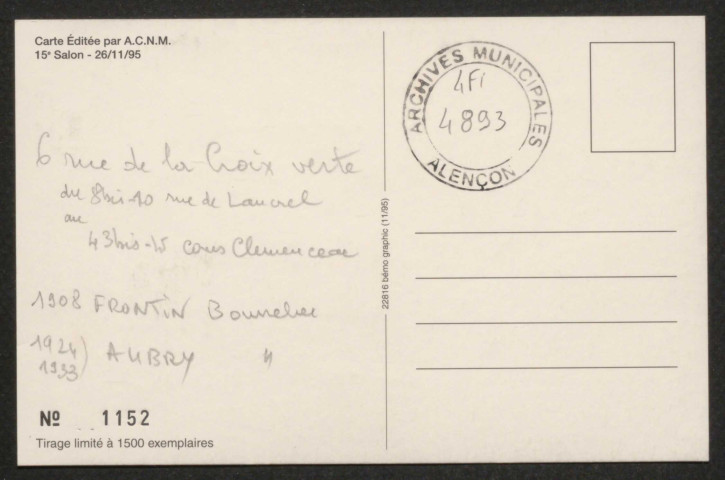 Carte Éditée par A.C.N.M.
15e Salon - 26/11/95
6 rue de la Croix verte
du 8bis-10 rue de Lancrel
au
43bis-45 cours Clemenceau
1908 FRONTIN Bourrelier
1924)
1933) AUBRY "
Nº 1152
Tirage limité à 1500 exemplaires
22816 bémo graphic (11/95)
ARCHIVES MUNICIPALES
4Fi
4893
ALENÇON